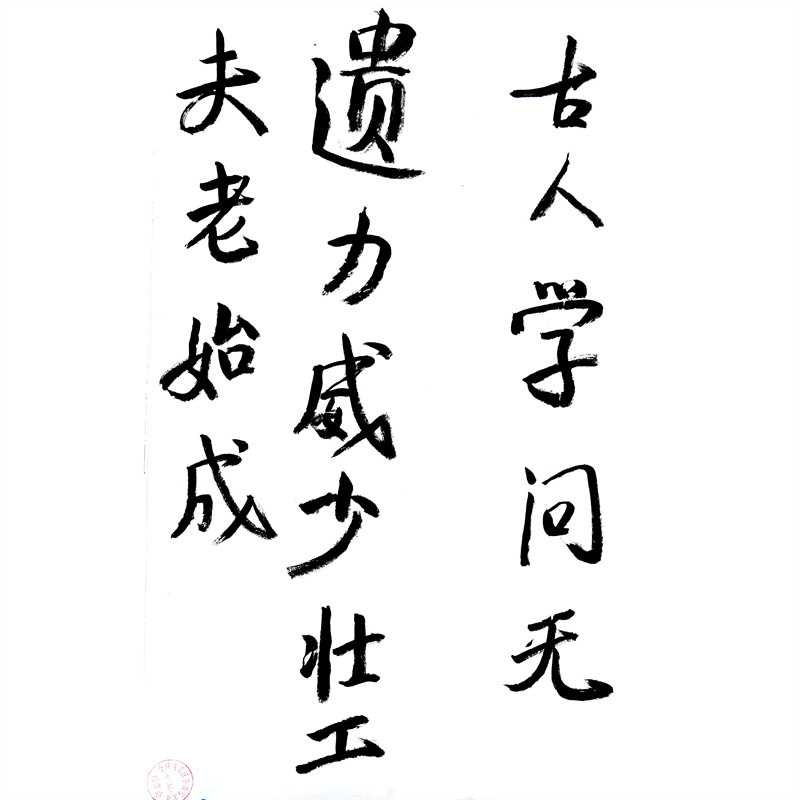 古人学问无
遗力威少壮工
夫老始成